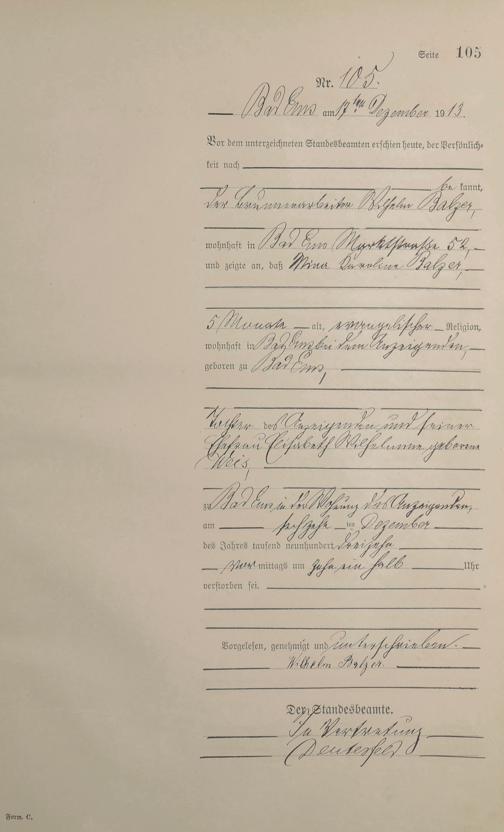 Seite 105
Nr. 105.
Bad Ems am 17ten Dezember 1913.
Vor dem unterzeichneten Standesbeamten erschien heute, der Persönlich-
keit nach
be kannt,
der Brunnenarbeiter Wilhelm Balzer,
wohnhaft in Bad Ems Marktstraße 52,
und zeigte an, daß Mina Karoline Balzer,
5 Monate alt, evangelischer Religion,
wohnhaft in Bad Ems bei dem Anzeigenden,
geboren zu Bad Ems,
Tochter des Anzeigenden und seiner
Ehefrau Elisabeth Wilhelmine geborene
zu Bad Ems, in der Wohnung des Anzeigenden,
am sechzehn ten Dezember
des Jahres tausend neunhundert dreizehn
vor mittags um zehn ein halb Uhr
verstorben sei.
Vorgelesen, genehmigt und unterschrieben.
Wilhelm Balzer
Der Standesbeamte.
In Vertretung
Form. C.